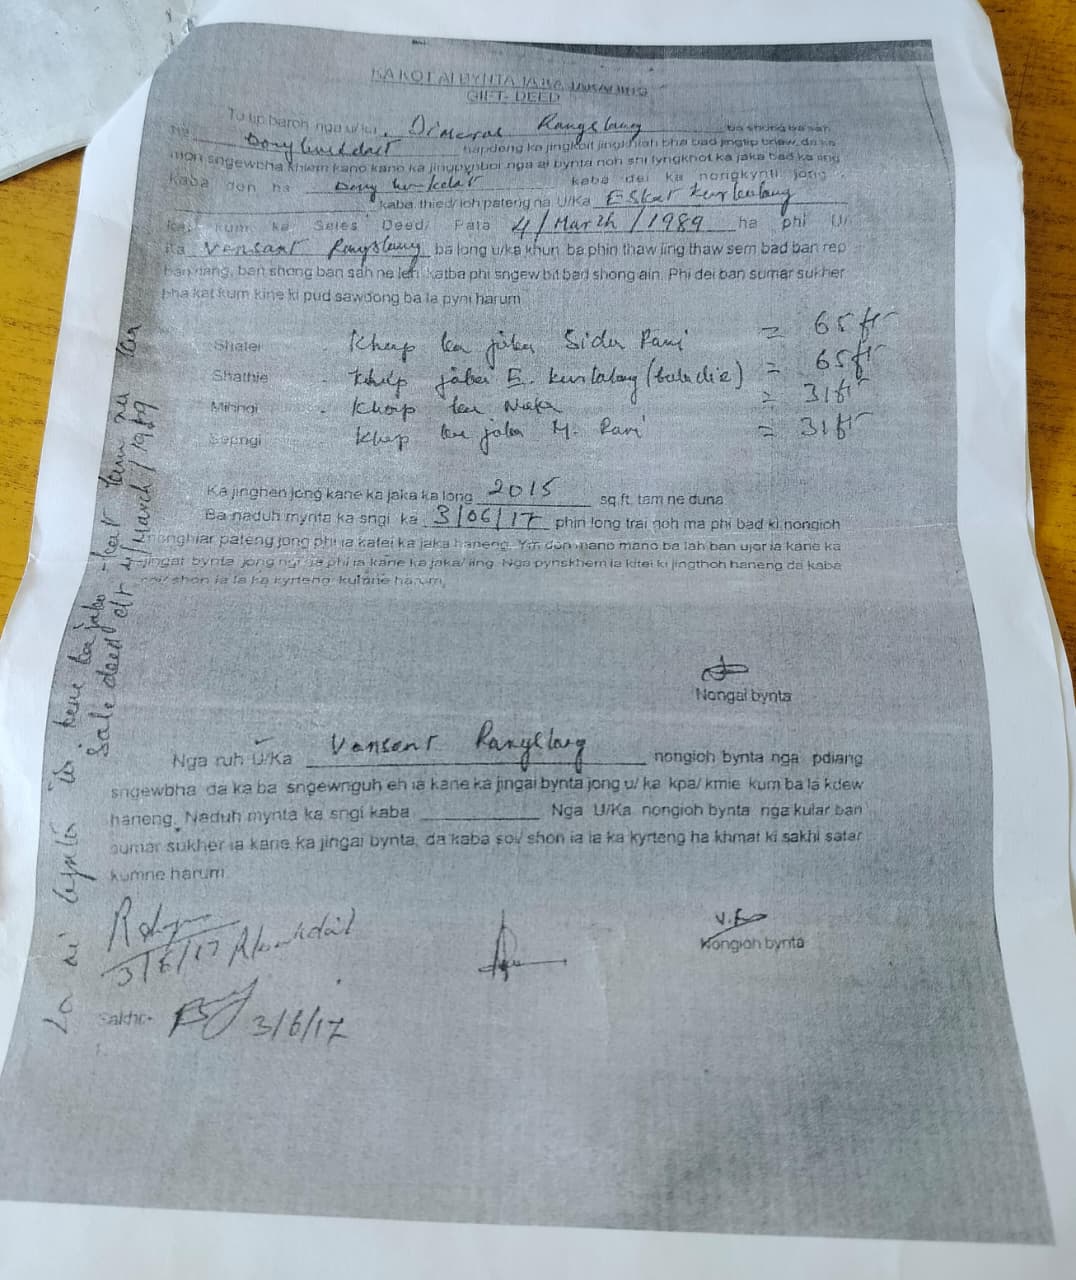 KA KOT AI BYNTA JAKA
GIFT- DEED
Tip baroh nga u/ka, Rangslang ba shong ba sah
ha hapdeng ka jingkoit jingkhiah bha bad jingtip briew, da ka
mon sngewbha khlem kano kano ka jingpynbor nga ai bynta noh shi lyngkhot ka jaka bad ka iing
kaba don ha kaba dei ka nongkynti jong
kaba thied/ioh pateng na U/Ka E-Skar Kurkalang
kat kum ka Seles Deed/ Pata 4/March/1989 ha phi U/
Ka Vensant Rangslang ba long u/ka khun ba phin thaw iing thaw sem bad ban rep
ban riang, ban shong ban sah ne leh katba phi sngew bit bad shong ain. Phi dei ban sumar sukher
bha kat kum kine ki pud sawdong ba la pyni harum
Shatei - Khap ka jaka Sidu Pani = 65 ft
Shathie - Khap jaka E. Kurkalang = 65 ft
Mihngi - Khap ka = 31 ft
Sepngi - Khap ka jaka M. Pani = 31 ft
Ka jinghen jong kane ka jaka ka long 2015 sq.ft. tam ne duna
Ba naduh mynta ka sngi ka 3/06/17 phin long trai noh ma phi bad ki nongioh
nonghiar pateng jong phi ia katei ka jaka haneng. Ym don mano mano ba lah ban ujor ia kane ka
jingai bynta jong nga ia phi ia kane ka jaka/ iing. Nga pynskhem ia kitei ki jingthoh haneng da kaba
soi/ shon ia la ka kyrteng kumne harum.
Nongai bynta
Nga ruh U/Ka Vensent Rangslang nongioh bynta nga pdiang
sngewbha da ka ba sngewnguh eh ia kane ka jingai bynta jong u/ ka kpa/ kmie kum ba la kdew
haneng. Naduh mynta ka sngi kaba Nga U/Ka nongioh bynta nga kular ban
sumar sukher ia kane ka jingai bynta, da kaba soi/ shon ia la ka kyrteng ha khmat ki sakhi satar
kumne harum
3/6/17
Nongioh bynta
Sakhi- 3/6/17
La ai bynta ia kane ka jaka kat kum ka
Sale deed dt 4/March/1989